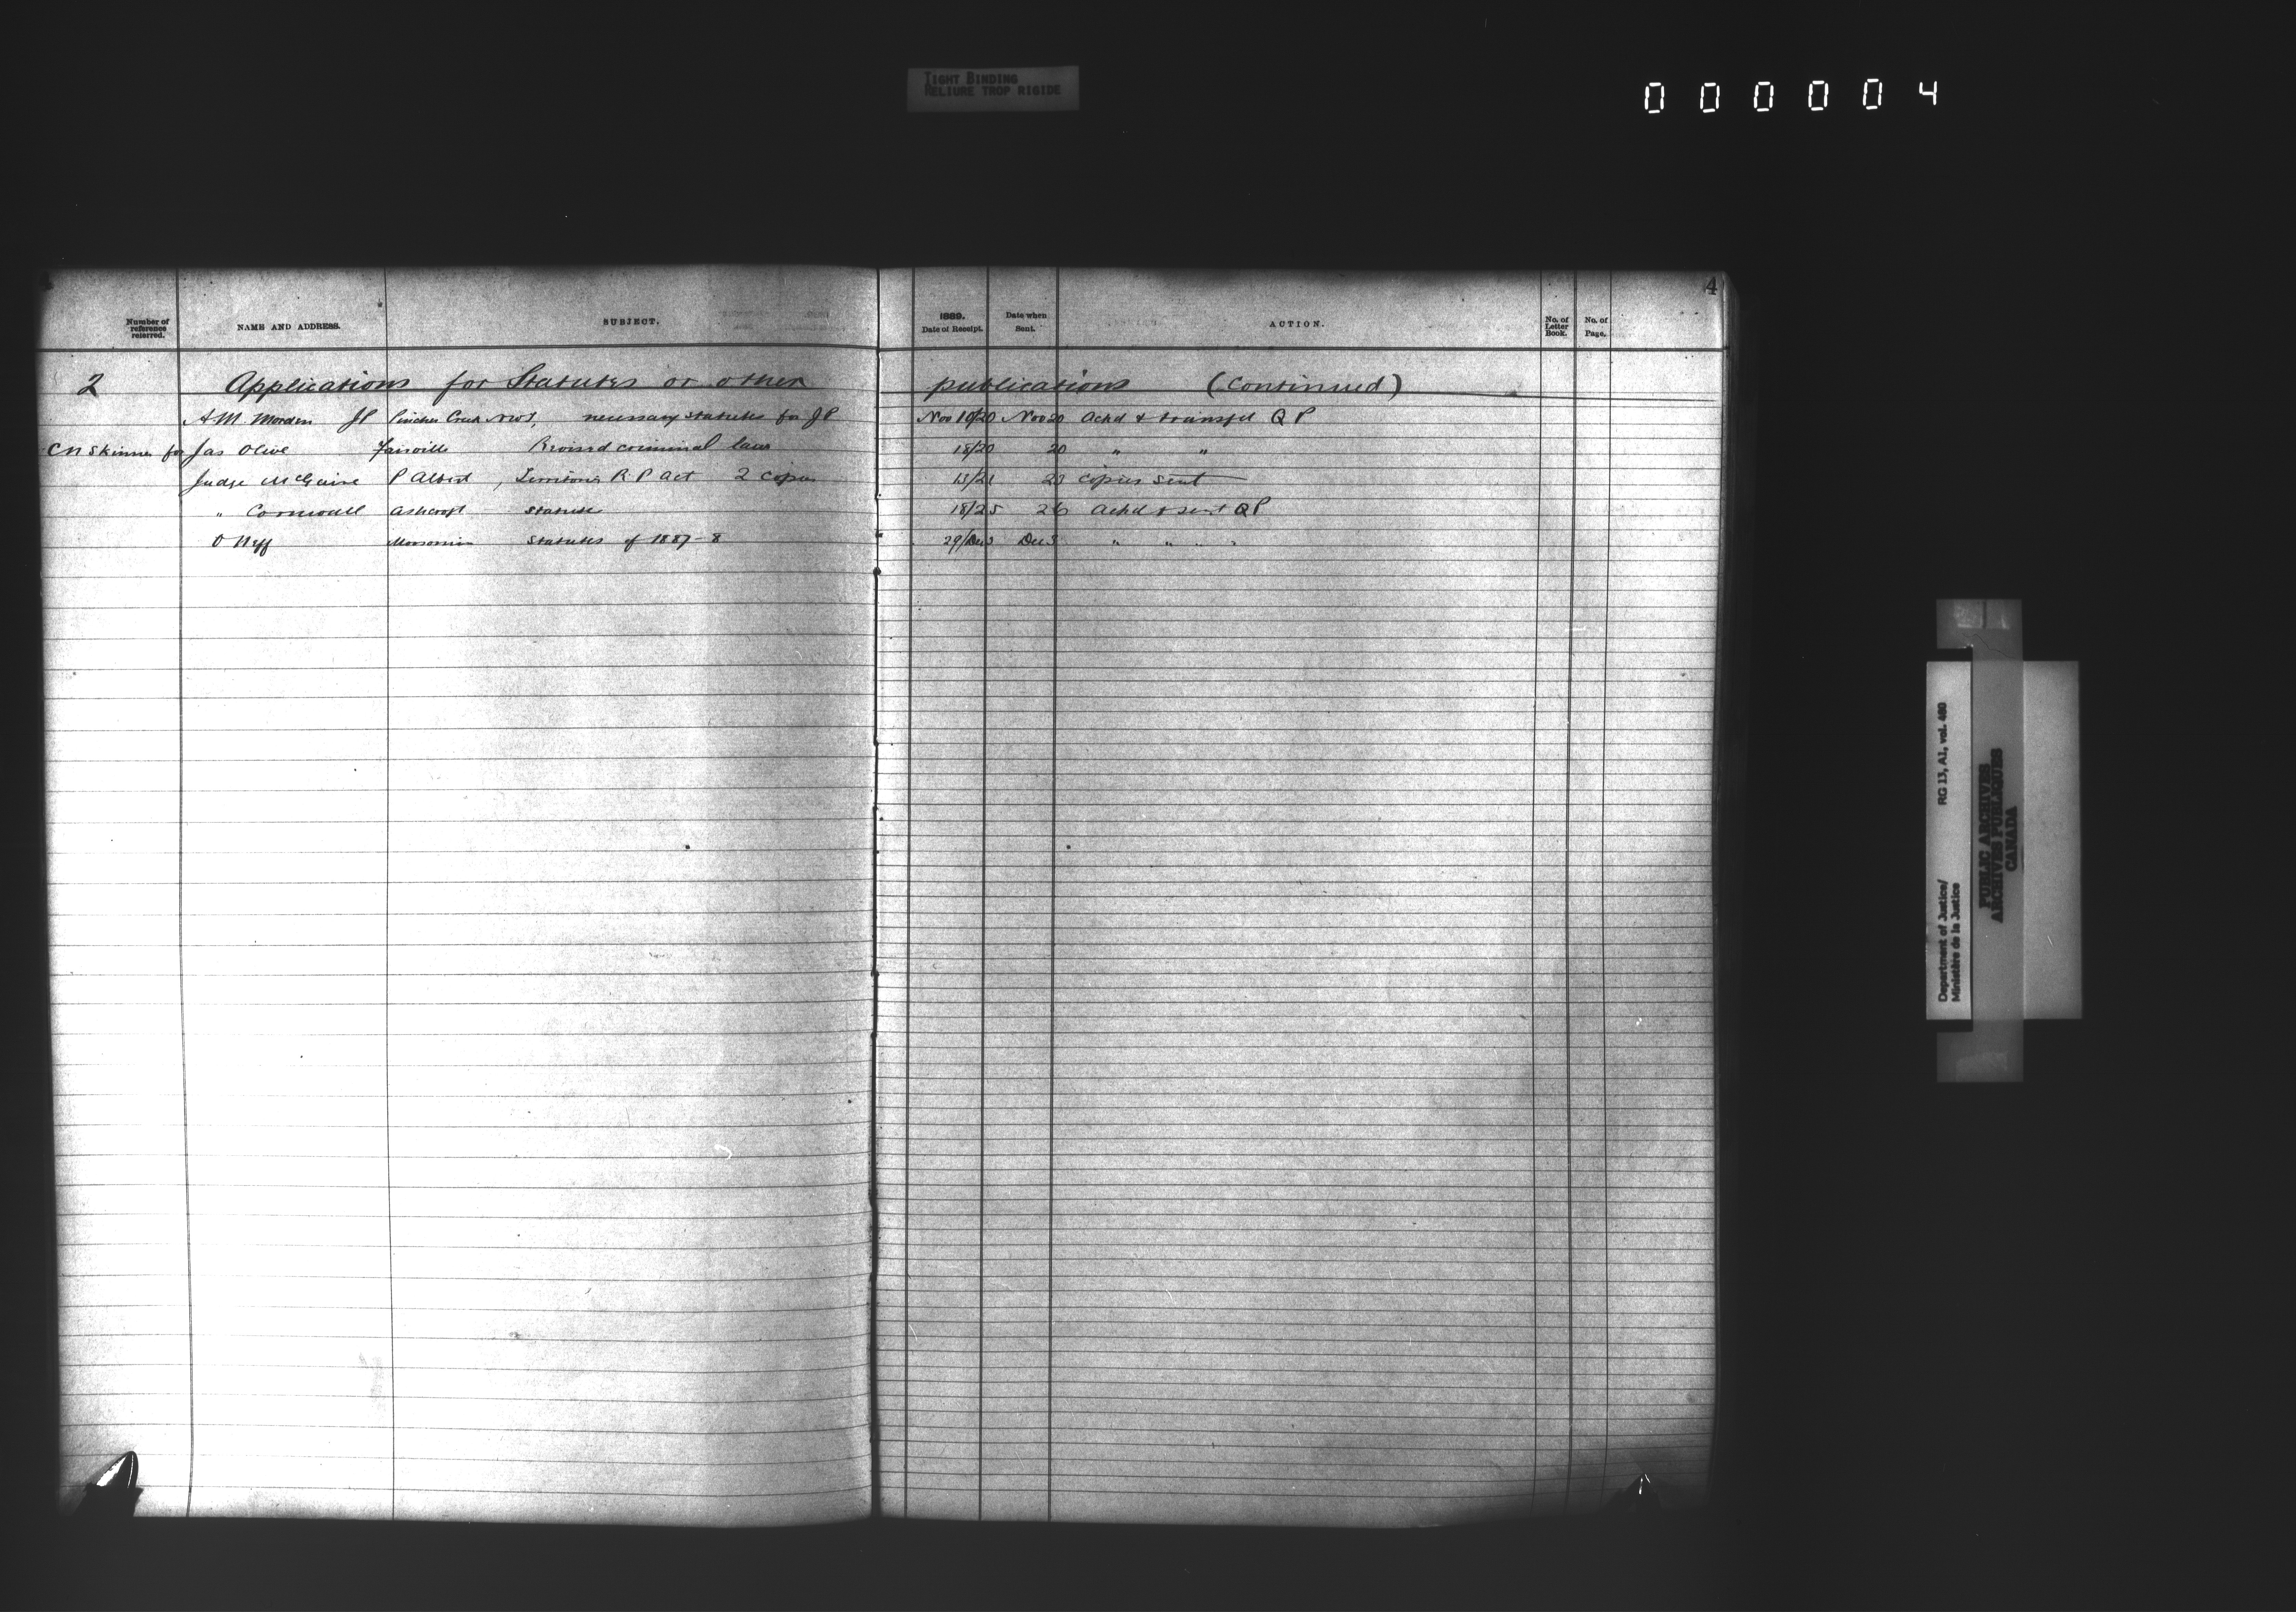 TIGHT BINDING
RELIURE TROP RIGIDE
000004
4
Number of reference referred. NAME AND ADDRESS. SUBJECT. 1889. Date of Receipt. Date when Sent. ACTION. No. of Letter Book. No. of Page.
2 Applications for Statutes or other publications (Continued)
A.M. Morden JP Pincher Creek NWT, necessary statutes for JP Nov 18/20 Nov 20 Ackd & transfd QP
C N Skinner for Jas Olive Fairville Revised criminal laws 18/20 20 " "
Judge McGuire P Albert, Territories R P Act 2 copies 15/21 21 copies sent
" Cornwall Ashcroft Statutes 18/25 26 Ackd & sent QP
O Neff Moosomin Statutes of 1887-8 29/Dec3 Dec 3 " " "
Department of Justice/ RG 13, A1, vol. 460
Ministère de la Justice
PUBLIC ARCHIVES
ARCHIVES PUBLIQUES
CANADA